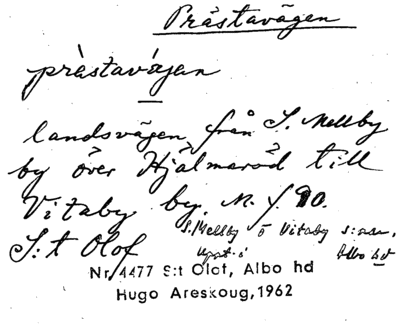 Prästavägen
prästavä̀jan
landsvägen från S. Mellby
by över Hjälmaröd till
Vitaby by. N. f. 90.
S. Mellby o Vitaby s:nar,
S:t Olof Albo hd
Nr 4477 S:t Olof, Albo hd
Hugo Areskoug, 1962